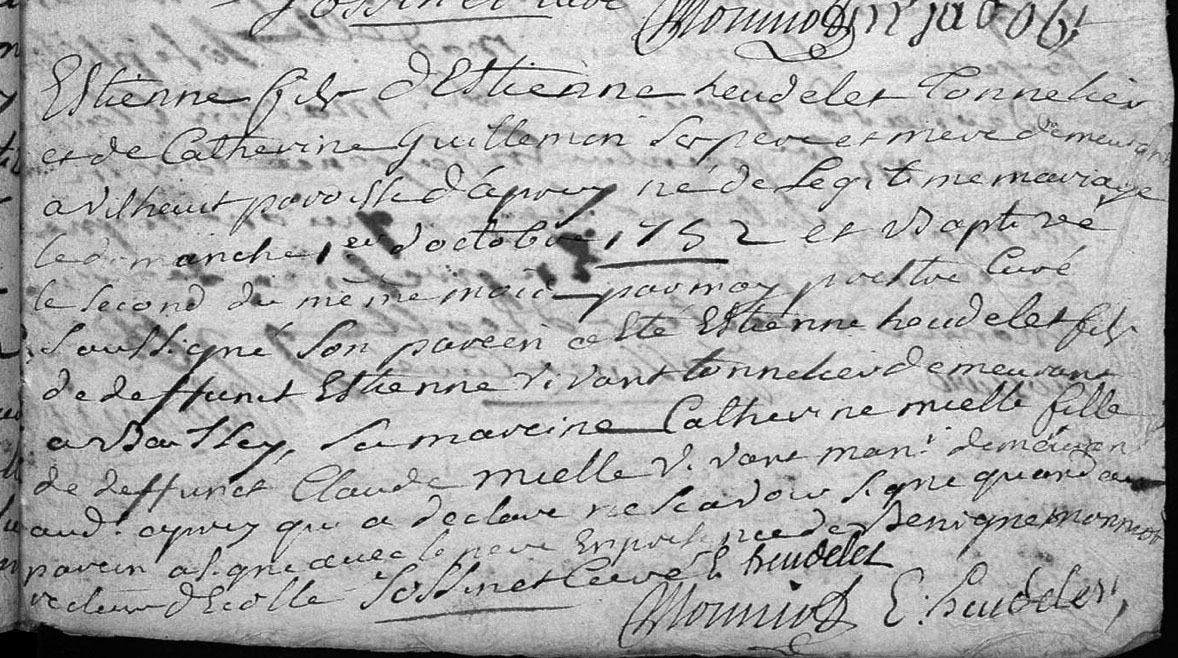 Sossinet curé
Monniot
Estienne fils d'Estienne heudelet Tonnelier
et de Catherine Guillemin ses pere et mere demeurant
a vilhaut paroisse d'éprey né de Legitime mariage
le dimanche 1er d'octobre 1752 et Baptizé
le second du mème mois par moy prestre Curé
Soussigné Son parein a esté Estienne heudelet fils
de deffunct Estienne vivant tonnelier demeurant
a Baissey, sa mareine Catherine mielle fille
de deffunct Claude mielle vivant man: demeurant
aud: eprey qui a declaré ne scavoir signe quand au
parein a signé avec le pere En presence de Benigne monniot
recteur d'Ecolle Sossinet Curé E heudelet
Monniot E: heudelet